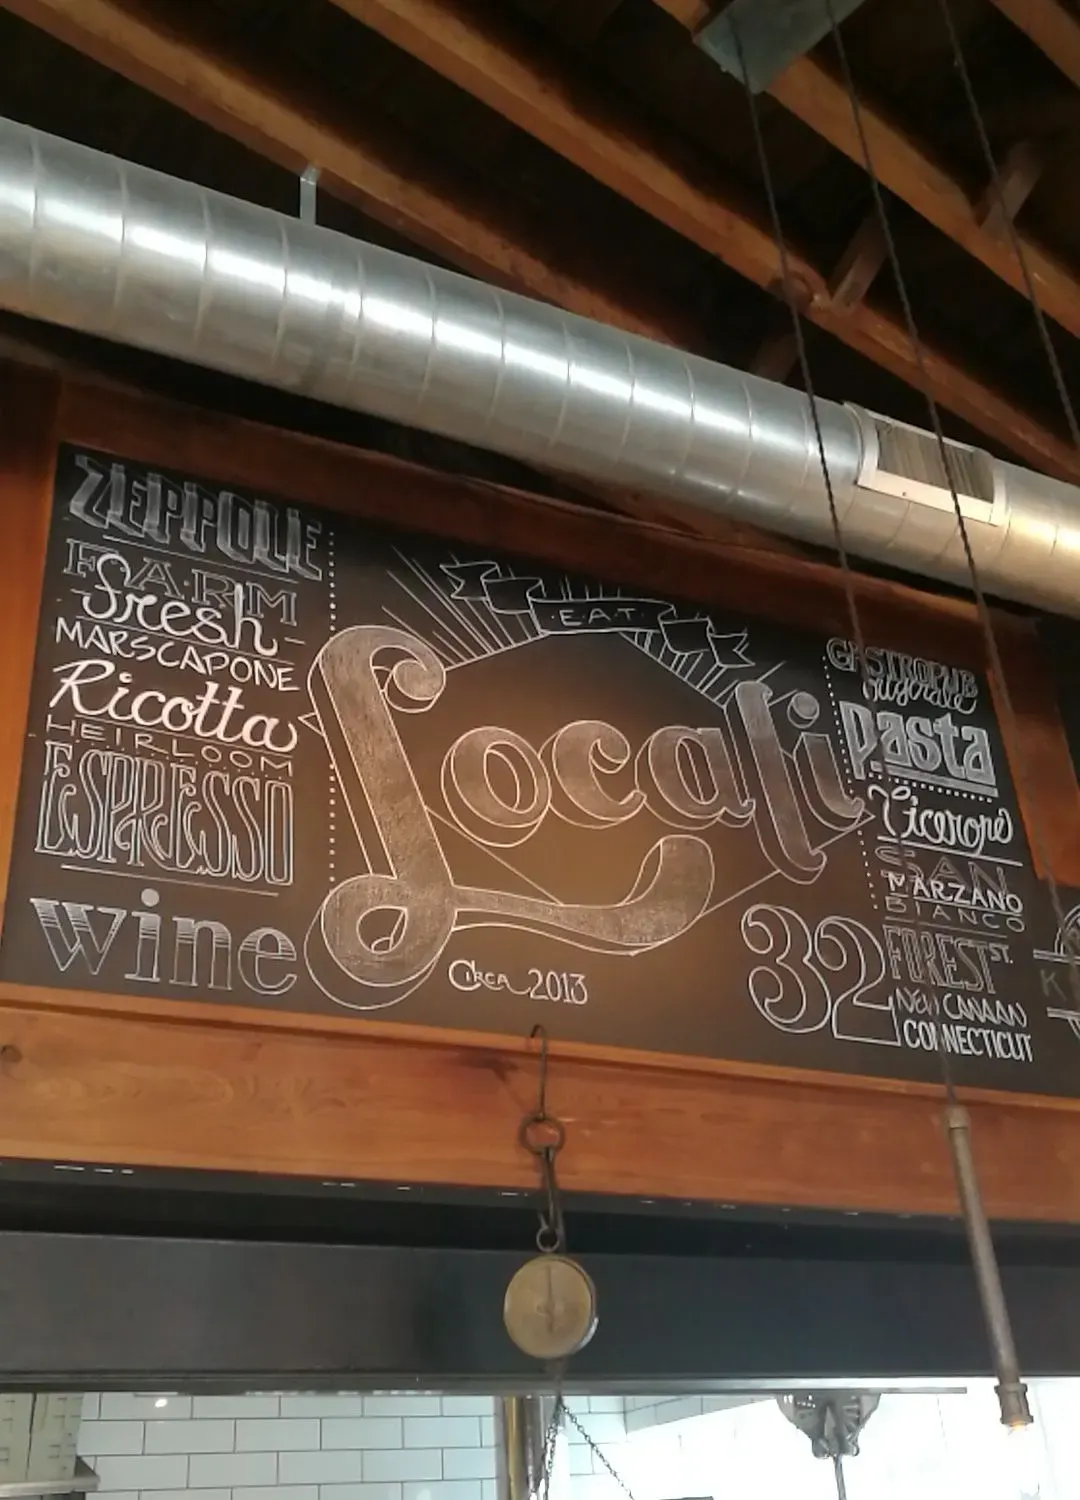 ZEPPOLE
FARM
Fresh
MARSCAPONE
Ricotta
HEIRLOOM
ESPRESSO
wine
E.A.T.
Locali
CIRCA 2013
GASTROPUB
Pasta
SAN
MARZANO
BIANCO
32 FOREST ST.
NEW CANAAN
CONNECTICUT